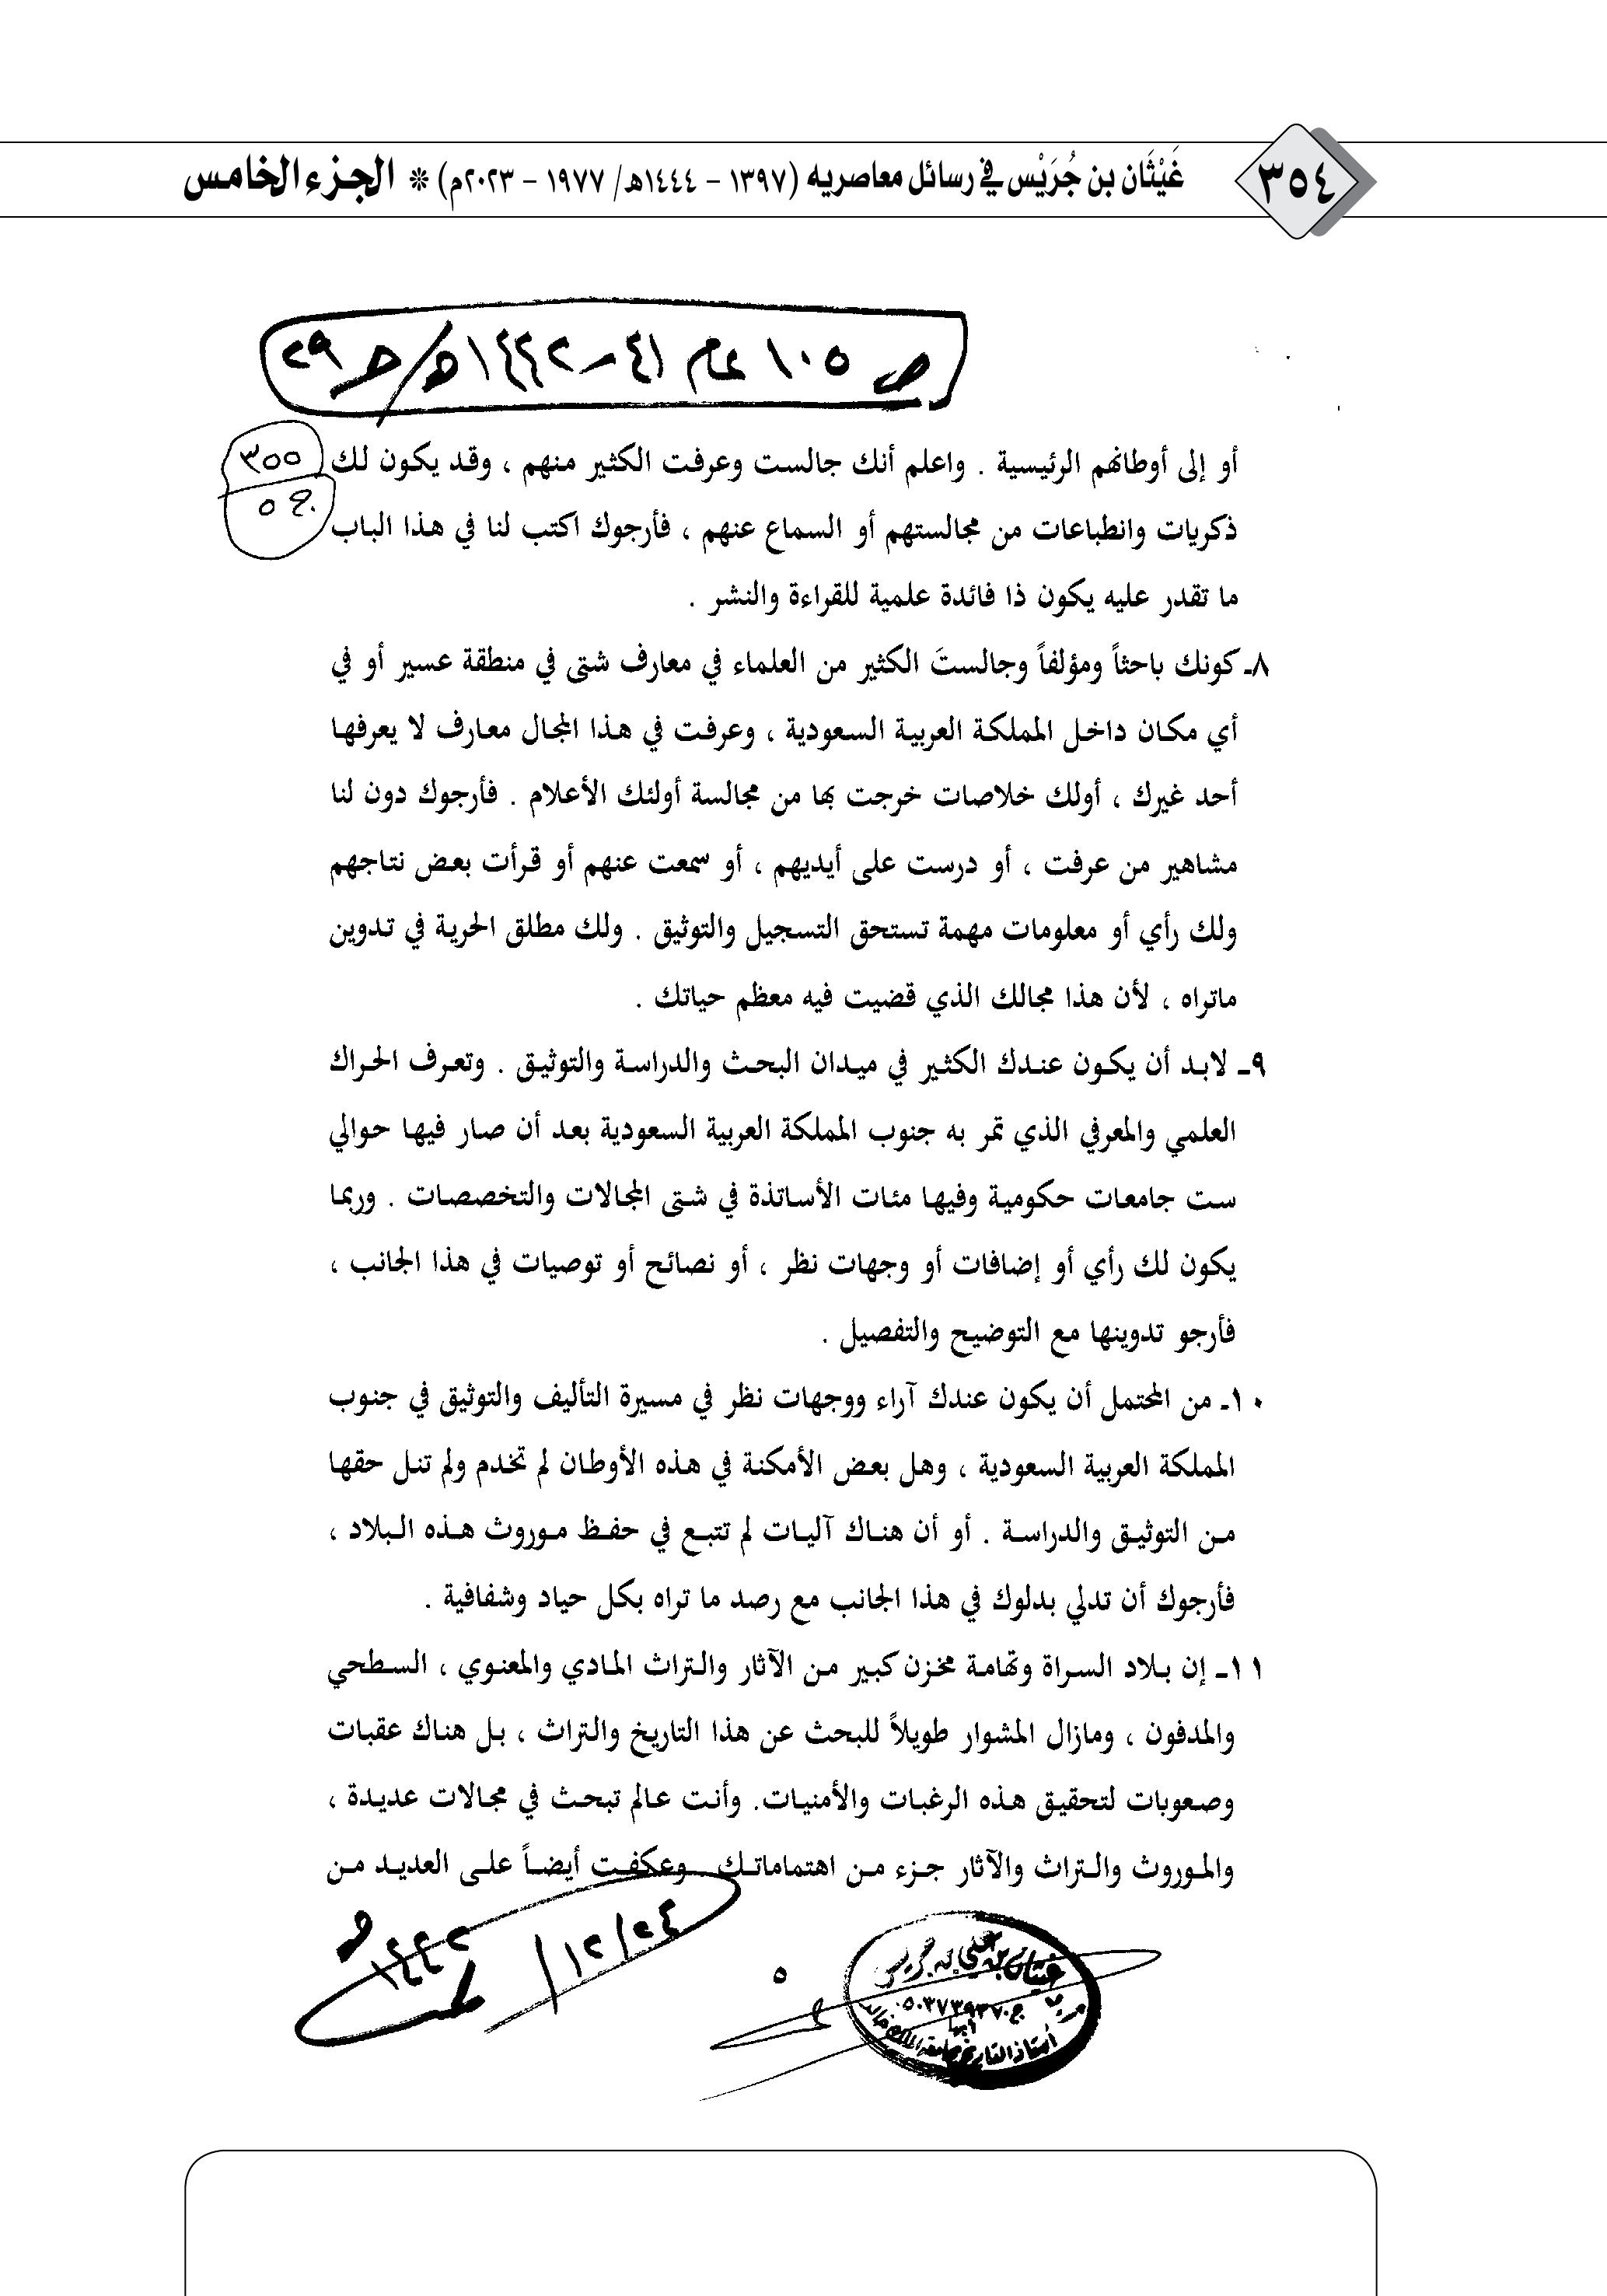 ٣٥٤
غَيْثَان بن جُرَيْس في رسائل معاصريه (١٣٩٧ – ١٤٤٤هـ/ ١٩٧٧ – ٢٠٢٣م) ❊ الجزء الخامس
ص ١٠٥ عام ٤١ – ١٤٤٢هـ/ حـ ٢٩
٣٥٥
أو إلى أوطانهم الرئيسية . واعلم أنك جالست وعرفت الكثير منهم ، وقد يكون لك
ذكريات وانطباعات من مجالستهم أو السماع عنهم ، فأرجوك اكتب لنا في هذا الباب
ما تقدر عليه يكون ذا فائدة علمية للقراءة والنشر .
٨ـ كونك باحثاً ومؤلفاً وجالستَ الكثير من العلماء في معارف شتى في منطقة عسير أو في
أي مكان داخل المملكة العربية السعودية ، وعرفت في هذا المجال معارف لا يعرفها
أحد غيرك ، أولك خلاصات خرجت بها من مجالسة أولئك الأعلام . فأرجوك دون لنا
مشاهير من عرفت ، أو درست على أيديهم ، أو سمعت عنهم أو قرأت بعض نتاجهم
ولك رأي أو معلومات مهمة تستحق التسجيل والتوثيق . ولك مطلق الحرية في تدوين
ماتراه ، لأن هذا مجالك الذي قضيت فيه معظم حياتك .
٩ـ لابد أن يكون عندك الكثير في ميدان البحث والدراسة والتوثيق . وتعرف الحراك
العلمي والمعرفي الذي تمر به جنوب المملكة العربية السعودية بعد أن صار فيها حوالي
ست جامعات حكومية وفيها مئات الأساتذة في شتى المجالات والتخصصات . وربما
يكون لك رأي أو إضافات أو وجهات نظر ، أو نصائح أو توصيات في هذا الجانب ،
فأرجو تدوينها مع التوضيح والتفصيل .
١٠ـ من المحتمل أن يكون عندك آراء ووجهات نظر في مسيرة التأليف والتوثيق في جنوب
المملكة العربية السعودية ، وهل بعض الأمكنة في هذه الأوطان لم تخدم ولم تنل حقها
من التوثيق والدراسة . أو أن هناك آليات لم تتبع في حفظ موروث هذه البلاد ،
فأرجوك أن تدلي بدلوك في هذا الجانب مع رصد ما تراه بكل حياد وشفافية .
١١ـ إن بلاد السراة وتهامة مخزن كبير من الآثار والتراث المادي والمعنوي ، السطحي
والمدفون ، ومازال المشوار طويلاً للبحث عن هذا التاريخ والتراث ، بل هناك عقبات
وصعوبات لتحقيق هذه الرغبات والأمنيات. وأنت عالم تبحث في مجالات عديدة ،
والموروث والتراث والآثار جزء من اهتماماتك . وعكفت أيضاً على العديد من
١٢/٢٤/ ١٤٤٢هـ
٥
غيثان بن علي بن جريس
ج٠٥٠٣٧٣٩٣٧٠
أبها
أستاذ التاريخ جامعة الملك خالد